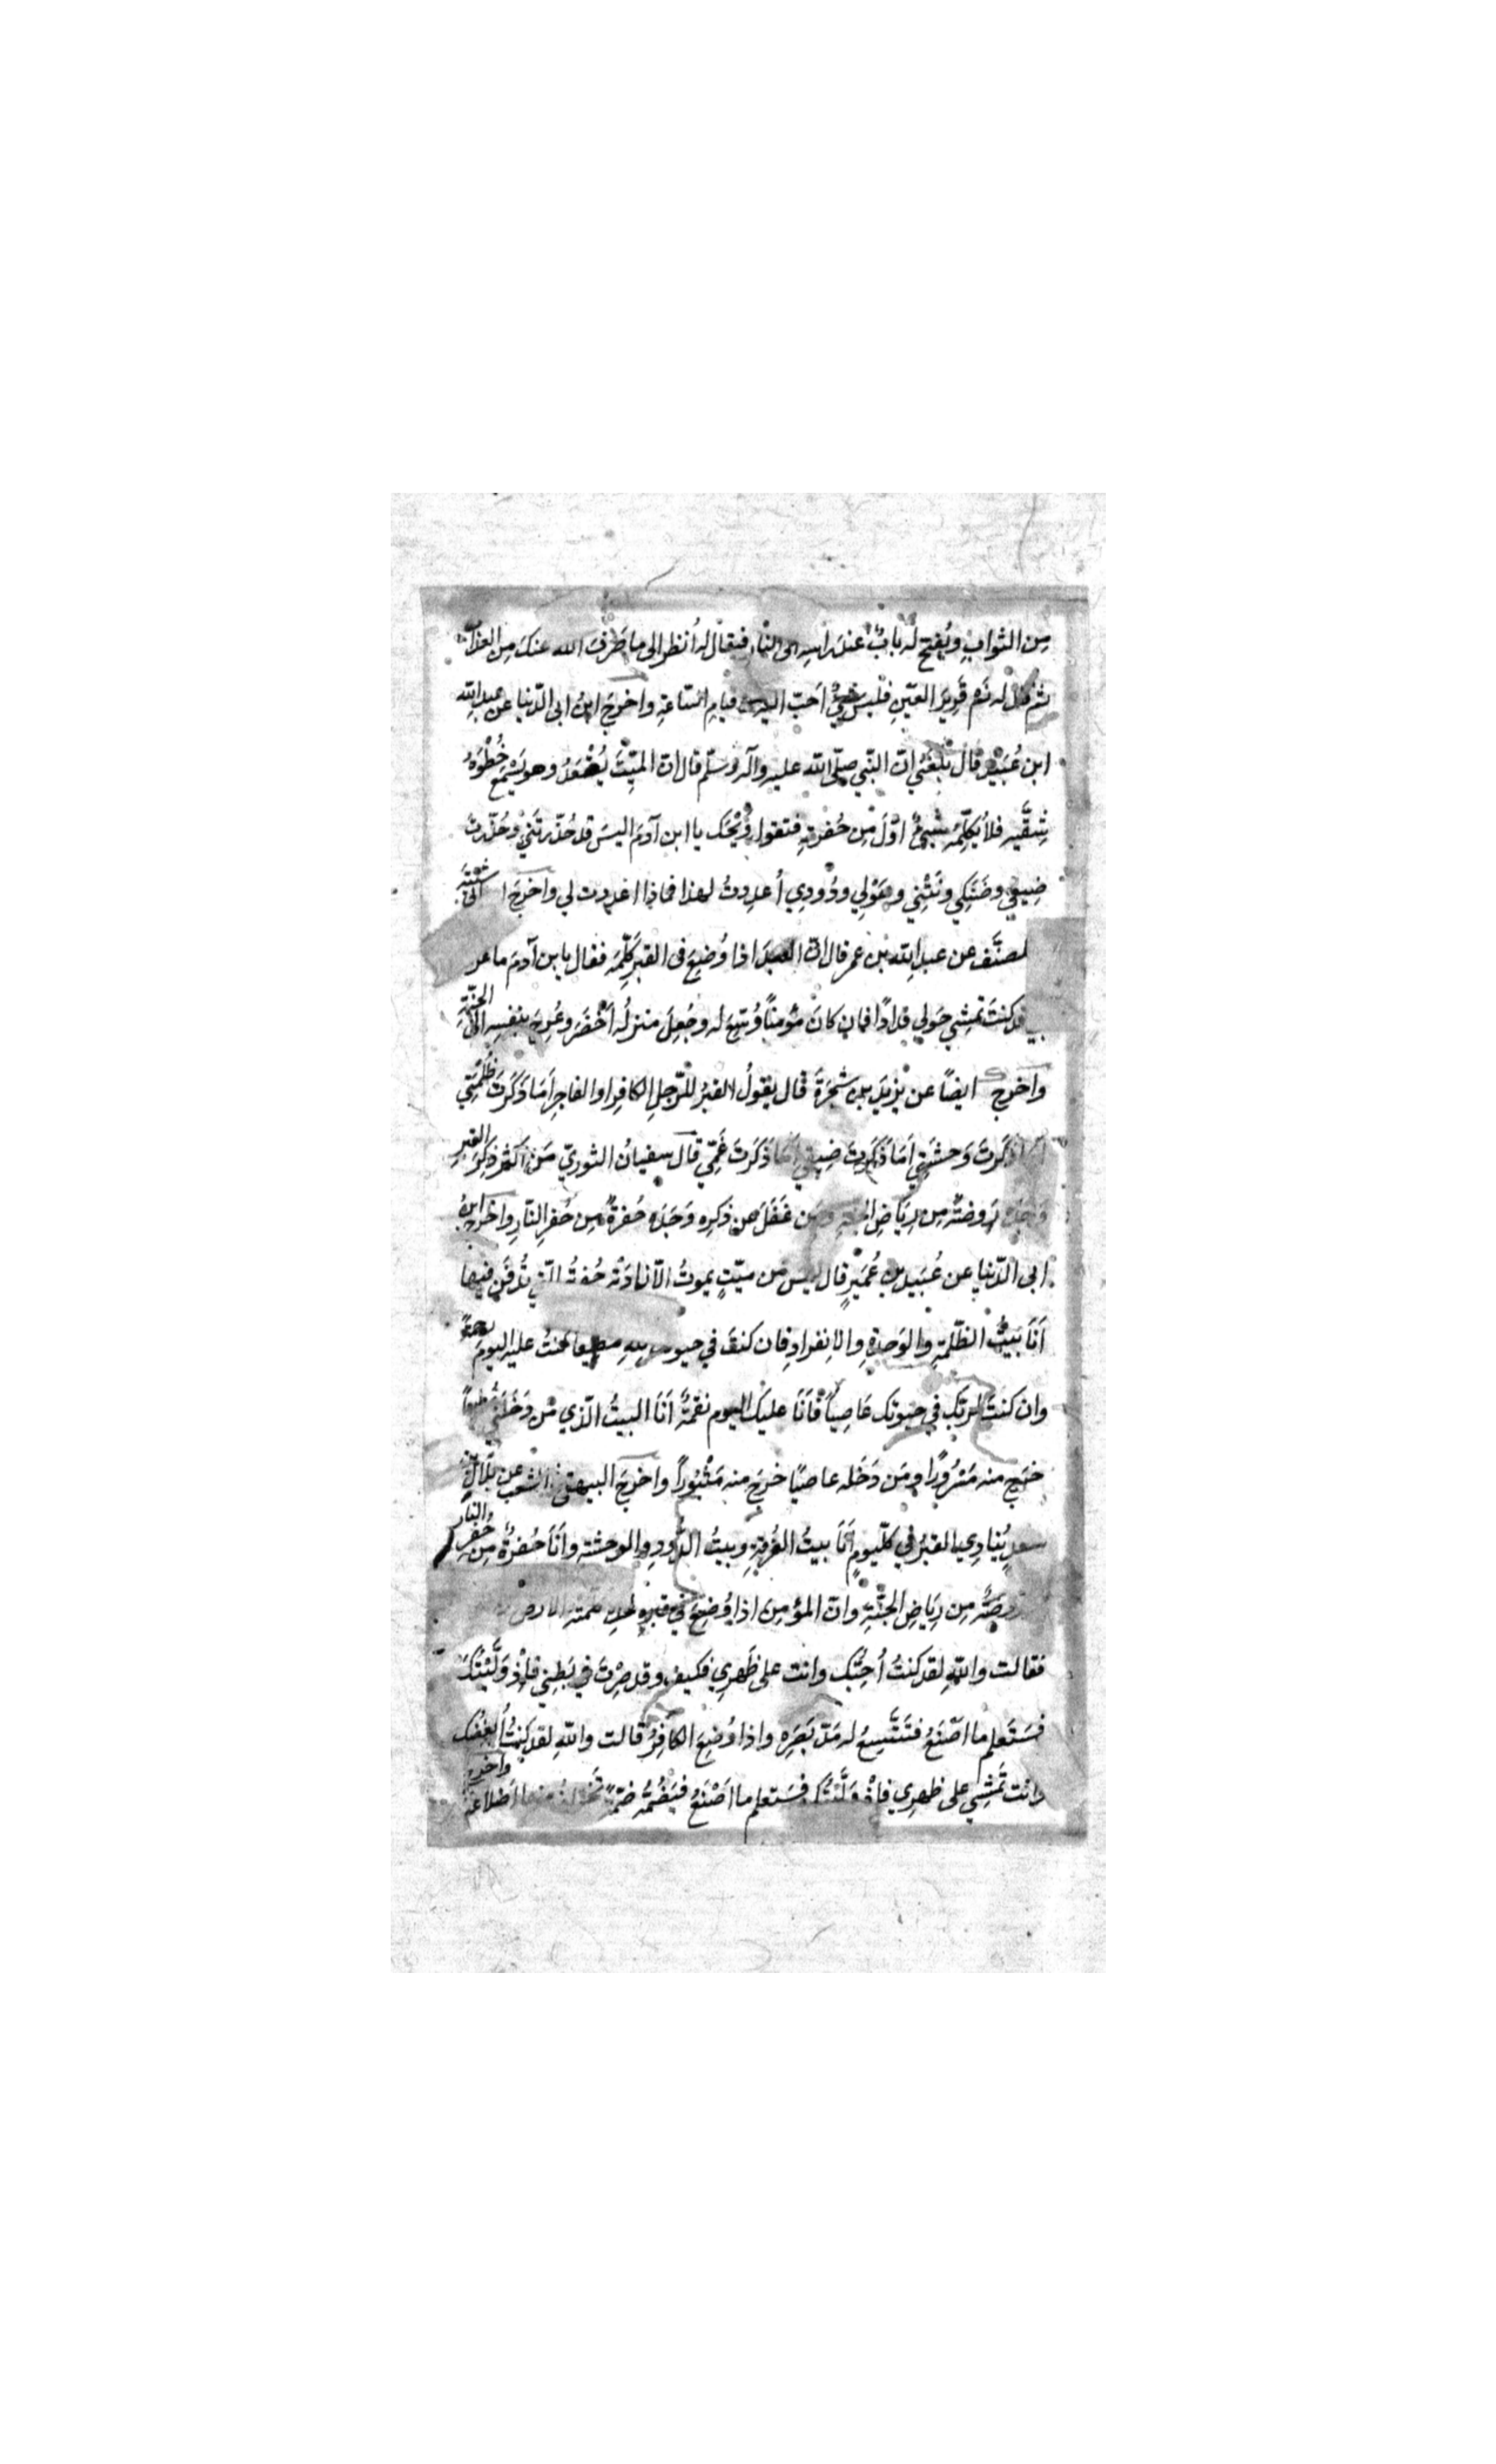 مِن الثوابِ ويُفتح له بابٌ عندَ راسِه الى النار فيقال له اُنظر الى ما صَرَفَ الله عنكَ مِن العذاب
ثم يقال له نَم قَرِيرَ العَيْنِ فليس شيءٌ اَحَبّ اليه من قيامِ السّاعةِ واخرجَ ابنُ ابى الدّنيا عن عبدِالله
ابن عُبَيْدٍ قال بَلَغَني انّ النّبي صلّى الله عليه وآله وسلّم قال انّ الميّتَ يُقْعَدُ وهو يَسْمَع خُطْوَةَ
مُشَيِّعيه فلا يُكلّمه شيءٌ اوّلَ مِن حُفرتِهِ فتقول وَيْحَكَ يا ابن آدمَ اليسَ قد حُذّرتَني وحُذّرتَ
ضِيقي وضَنَكي ونَتْني وهَوْلي ودُودي أُعدِدتُ لهذا فماذا اعددت لي واخرجَ ابن ابى شَيْبَة
المصنَّف عن عبد الله بن عمر قال انّ العبدَ اذا وُضِعَ فى القبرِ كَلّمَه فقال يا بن آدمَ ما غر
بي قد كنتَ تمشي حَولي فدادًا فان كانَ مؤمنًا وُسّعَ له وجُعِلَ منزلُه اَخْضَرَ وعُرِجَ بنفسِه الى الجنّةِ
واخرج ايضًا عن يزيدَ بن شَجَرَةَ قال يقولُ القبرُ للرّجلِ الكافرِ او الفاجرِ اَمَا ذَكَرتَ ظُلْمَتي
اَمَا ذَكَرتَ وَحشَتي اَمَا ذَكَرتَ ضِيقي اَمَا ذَكَرتَ غَمّي قال سفيان الثوريّ مَن اَكثرَ ذِكرَ القبرِ
وَجَدَه رَوضةً مِن رِيَاضِ الجنّةِ ومَن غَفَلَ عن ذكرِه وَجَدَه حُفرةً مِن حُفرِ النّارِ واخرج ابنُ
ابى الدّنيا عن عُبَيد بن عُمَيْرٍ قال ليس مِن ميّتٍ يموتُ الّا نادَتْه حُفرتُه الّتي يُدفَن فيها
اَنَا بَيتُ الظّلمةِ والوَحدةِ والانفرادِ فان كنتَ في حيوتك للّهِ مطيعا كنتُ عليك اليومَ رحمةً
وان كنتَ لربّك في حيوتك عَاصيًا فَاَنَا عليكَ اليوم نقمةٌ اَنَا البيتُ الّذي مَن دَخَلَني مُطيعًا
خرج منه مَسْرُورًا ومَن دَخَله عاصيًا خرجَ منه مَثْبُورًا واخرجَ البيهقى في الشعب عن بلال بن
سعدٍ يُنادِي القبرُ في كلّ يومٍ اَنَا بيتُ الغُربةِ وبيتُ الدُّودِ والوحشةِ وانَا حُفرةٌ مِن حُفرِ النّارِ
روضةٌ مِن رِيَاضِ الجنّةِ وانّ المؤمنَ اذا وُضِعَ في قبرِه كلّمته الارض
فقالت واللهِ لقد كنتُ اُحِبُّك وانت على ظَهرِي فكيف وقد صِرْتَ في بَطني فاِذْ وَلَّيْتُكَ
فسَتَعلم ما اَصْنَعُ فتَتَّسِعُ له مَدّ بَصَرِه واذا وُضِعَ الكافرُ قالت واللهِ لقد كنتُ اُبغِضُك
وانت تَمْشِي على ظهرِي فاِذْ وَلَّيْتُك فسَتعلم ما اصْنَعُ فتَضُمُّه ضَمّةً تَختَلِفُ منها اَضلاعُه
واخرج